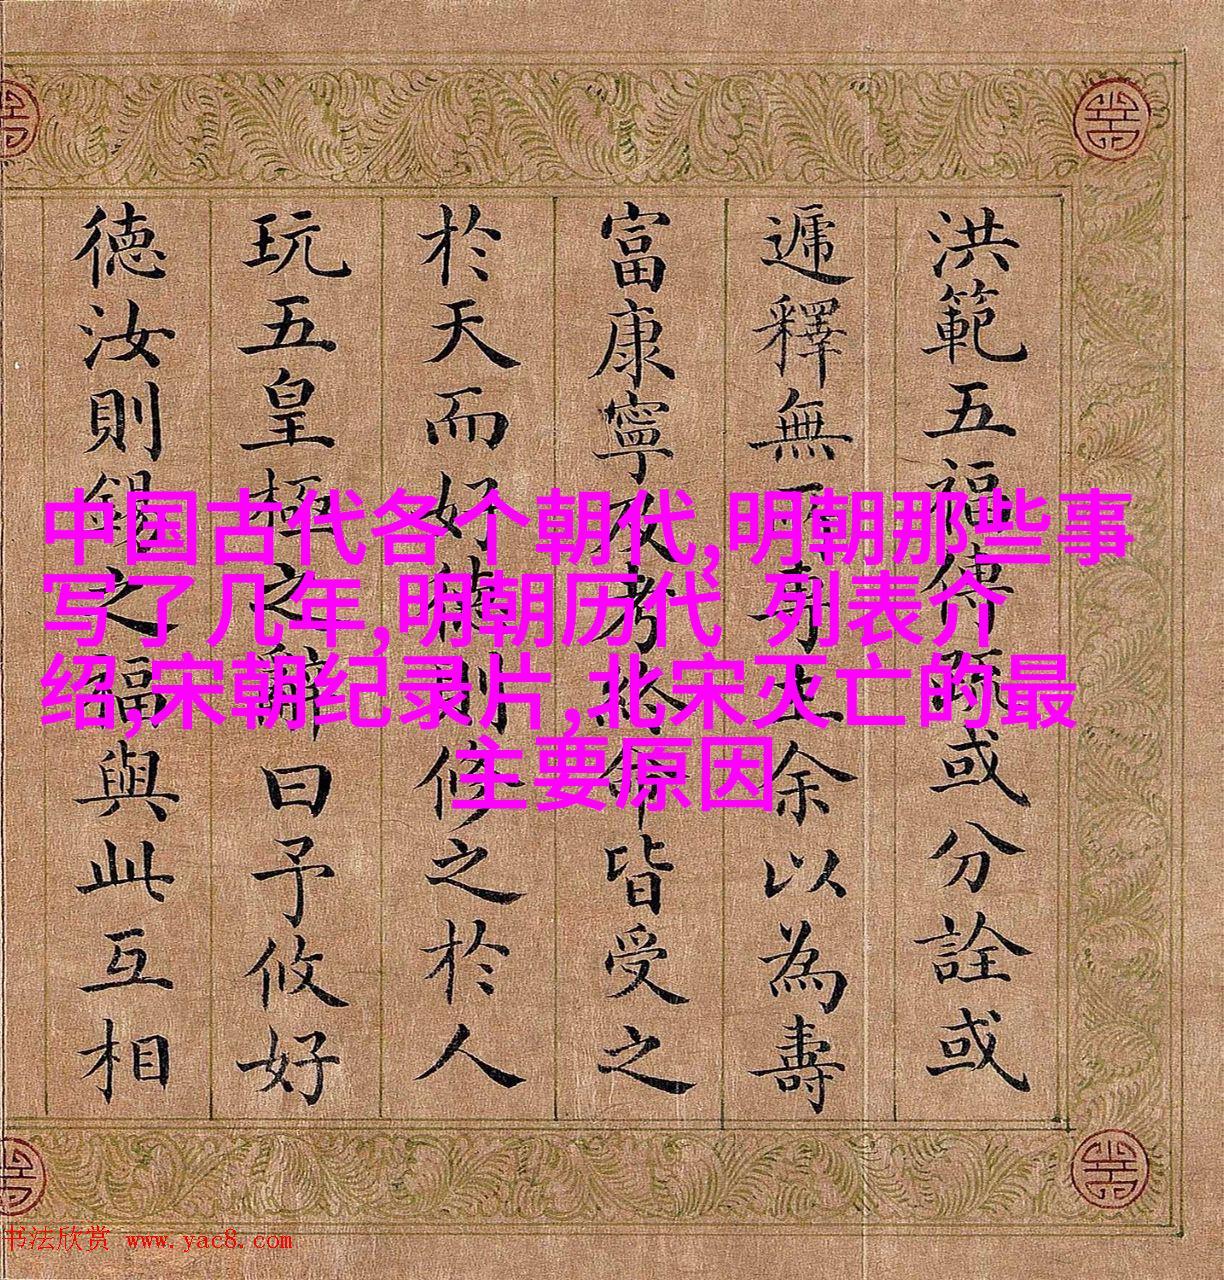 中国古代各个朝代,明朝那些事
写了几年,明朝历代 列表介
绍,宋朝纪录片,北宋灭亡的最
主要原因
洪範五福傳既或分詮或
遞釋無專主余以為壽
富康寧及考終命皆受之
於天而好德則修之於人
玩五皇極之辭曰予攸好
德汝則錫之福與此互相
书法欣赏 www.yac8.com